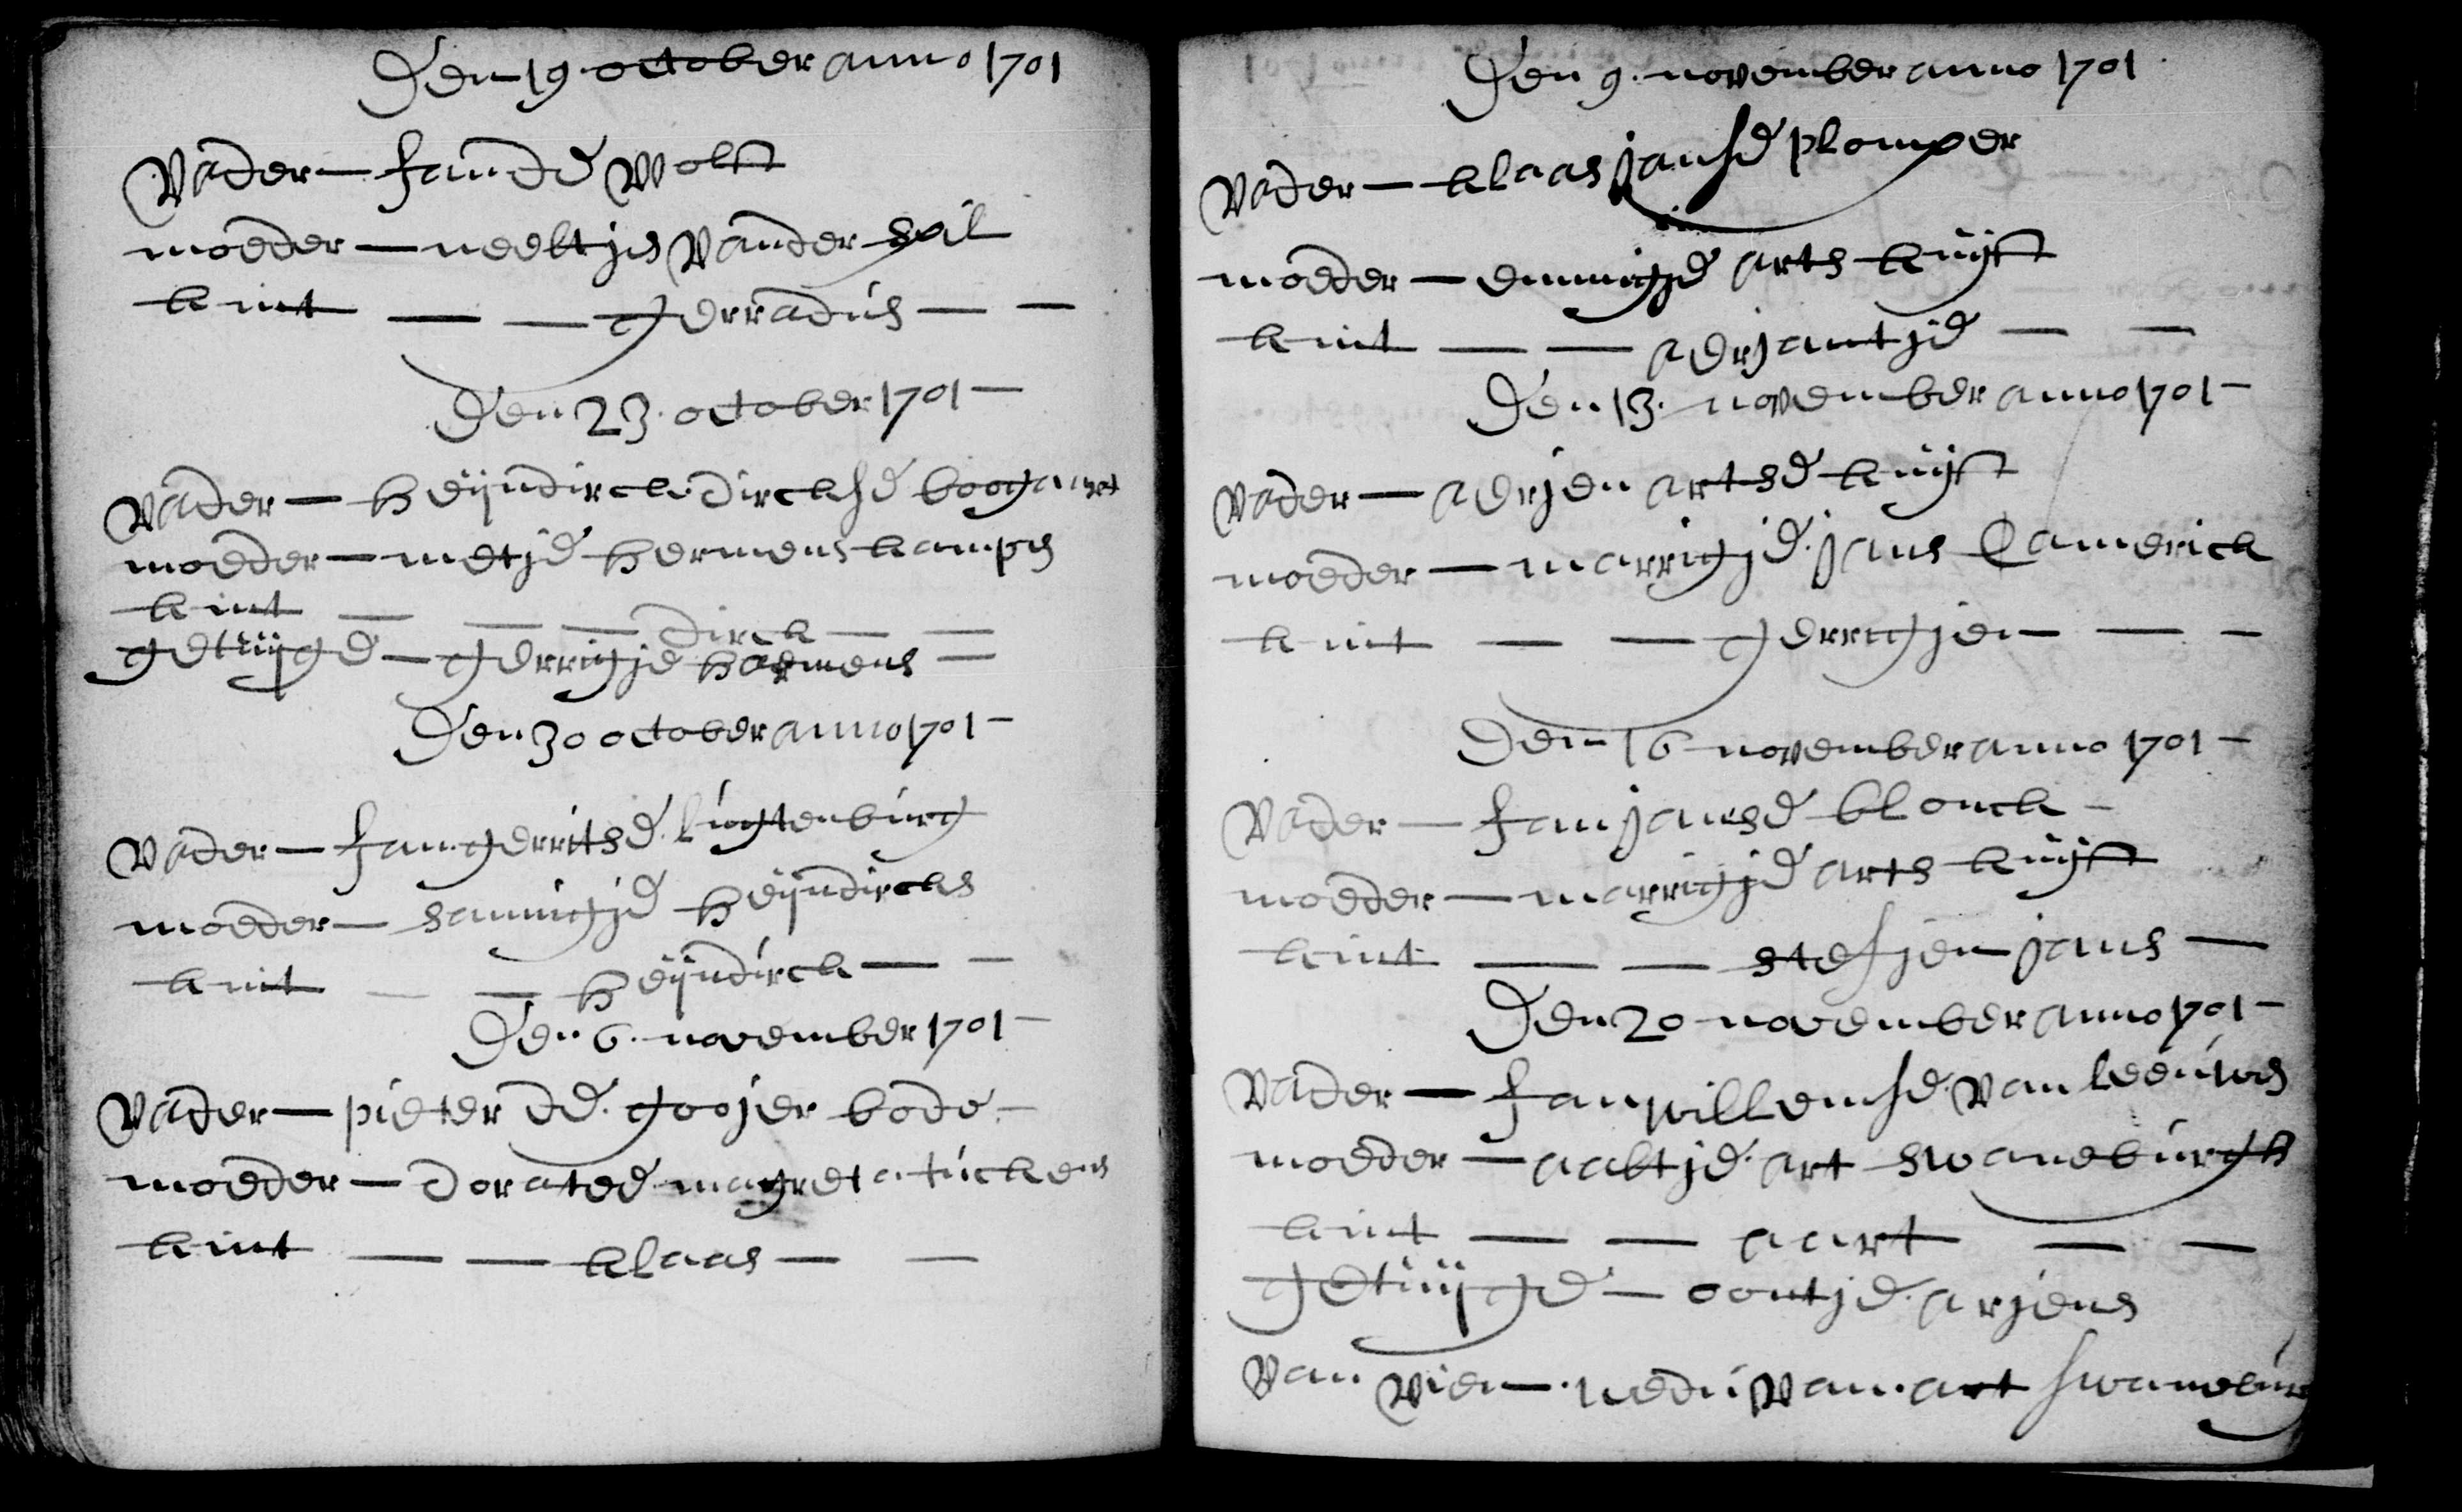 Den 19 october anno 1701
Vader — Jan de Wolff
moeder — neeltjes Vander
kint — — gerradus — —
Den 23. october 1701 —
Vader — heijndirck dirckse boogaart
moeder — metje hermens kamps
kint — — — dirck — —
getuijge — gerrigje harmens —
Den 30 october anno 1701 —
Vader — Jan gerritse lugtenburg
moeder — sannigje heijndircks
kint — — heijndirck — —
Den 6. november 1701 —
Vader — pieter de gooijer bode —
moeder — doratee magreta tuckens
kint — — klaas — —
Den 9. november anno 1701
Vader — klaas janse plomper
moeder — emmigje arts kuijff
kint — — aerjantje — —
Den 13. november anno 1701 —
Vader — aerjen artse kuijff
moeder — marrigje jans Camerick
kint — — gerrigjen — —
Den 16 november anno 1701 —
Vader — Jan janse blonck —
moeder — marrigje arts kuijff
kint — — stefjen jans —
Den 20 november anno 1701 —
Vader — Jan willemse van leeuwes
moeder — aaltje art swaneburgh
kint — — aart — —
getuijge — oontje arjens
van vien weduwe van art swanebur